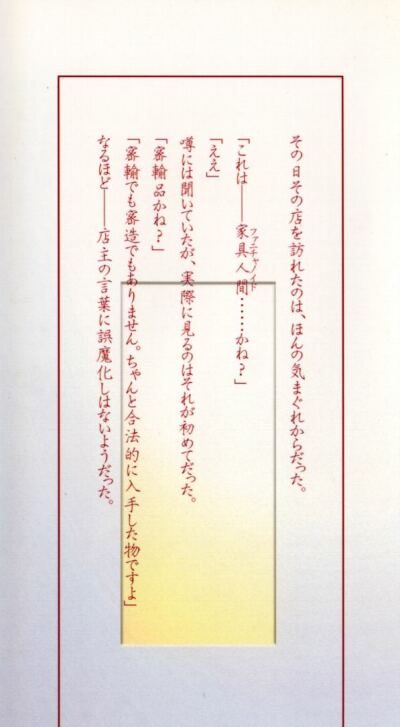 その日その店を訪れたのは、ほんの気まぐれからだった。
「これは――家具人間……かね？」
ファニチャノイド
「ええ」
噂には聞いていたが、実際に見るのはそれが初めてだった。
「密輸品かね？」
「密輸でも密造でもありません。ちゃんと合法的に入手した物ですよ」
なるほど――店主の言葉に誤魔化しはないようだった。